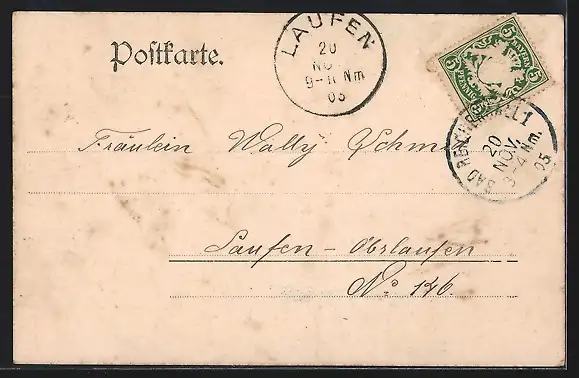 Postkarte.
LAUFEN
20
NOV
9-11 Nm
05
5 BAYERN 5
5 PFENNIG 5
BAD REICHENHALL 1
20
NOV.
3-4 Nm.
05
Fräulein Wally Schmid
Laufen - Oberlaufen
No. 146.